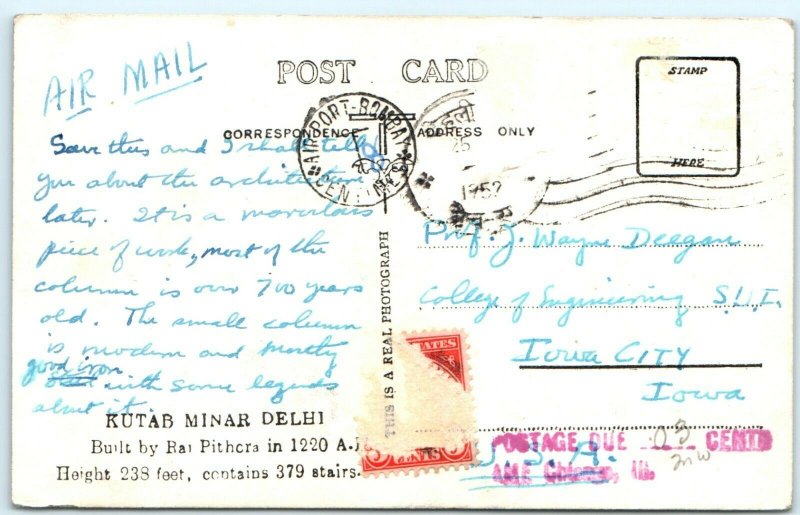 AIR MAIL
POST CARD
CORRESPONDENCE
ADDRESS ONLY
STAMP
HERE
AIR PORT-BOMBAY
1952
Save this and I shall tell
you about the architecture
later. It is a marvelous
piece of work, most of the
column is over 700 years
old. The small column
is modern and mostly
good iron
with some legends
about it.
KUTAB MINAR DELHI
Built by Rai Pithora in 1220 A.D
Height 238 feet, contains 379 stairs.
THIS IS A REAL PHOTOGRAPH
Prof. J. Wayne Deegan
College of Engineering S.U.I.
Iowa CITY
Iowa
U.S.A.
STATES
3 CENTS 3
POSTAGE DUE 03 CENTS